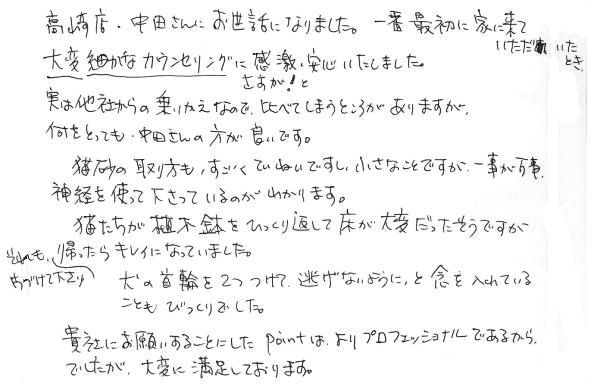 高崎店・中田さんにお世話になりました。一番最初に家に来て
いただいたとき、
大変細かなカウンセリングに感激、安心いたしました。
さすが!と
実は他社からの乗りかえなので、比べてしまうところがありますが、
何をとっても・中田さんの方が良いです。
猫砂の取り方も、すごくていねいですし、小さなことですが、一事が万事、
神経を使って下さっているのがわかります。
猫たちが植木鉢をひっくり返して床が大変だったそうですが
それも、帰ったらキレイになっていました。
片づけて下さり
犬の首輪を2つつけて、逃げないように、と念を入れている
こともびっくりでした。
貴社にお願いすることにしたpointは、よりプロフェッショナルであるから、
でしたが、大変に満足しております。